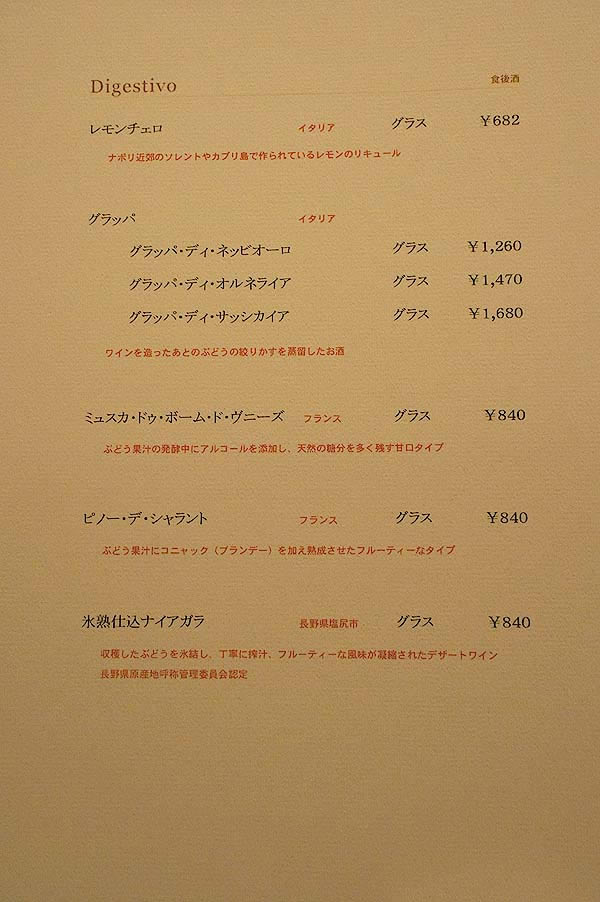 Digestivo 食後酒
レモンチェロ イタリア グラス ¥682
ナポリ近郊のソレントやカプリ島で作られているレモンのリキュール
グラッパ イタリア
グラッパ・ディ・ネッビオーロ グラス ¥1,260
グラッパ・ディ・オルネライア グラス ¥1,470
グラッパ・ディ・サッシカイア グラス ¥1,680
ワインを造ったあとのぶどうの絞りかすを蒸留したお酒
ミュスカ・ドゥ・ボーム・ド・ヴニーズ フランス グラス ¥840
ぶどう果汁の発酵中にアルコールを添加し、天然の糖分を多く残す甘口タイプ
ピノー・デ・シャラント フランス グラス ¥840
ぶどう果汁にコニャック（ブランデー）を加え熟成させたフルーティーなタイプ
氷熟仕込ナイアガラ 長野県塩尻市 グラス ¥840
収穫したぶどうを氷結し、丁寧に搾汁、フルーティーな風味が凝縮されたデザートワイン
長野県原産地呼称管理委員会認定